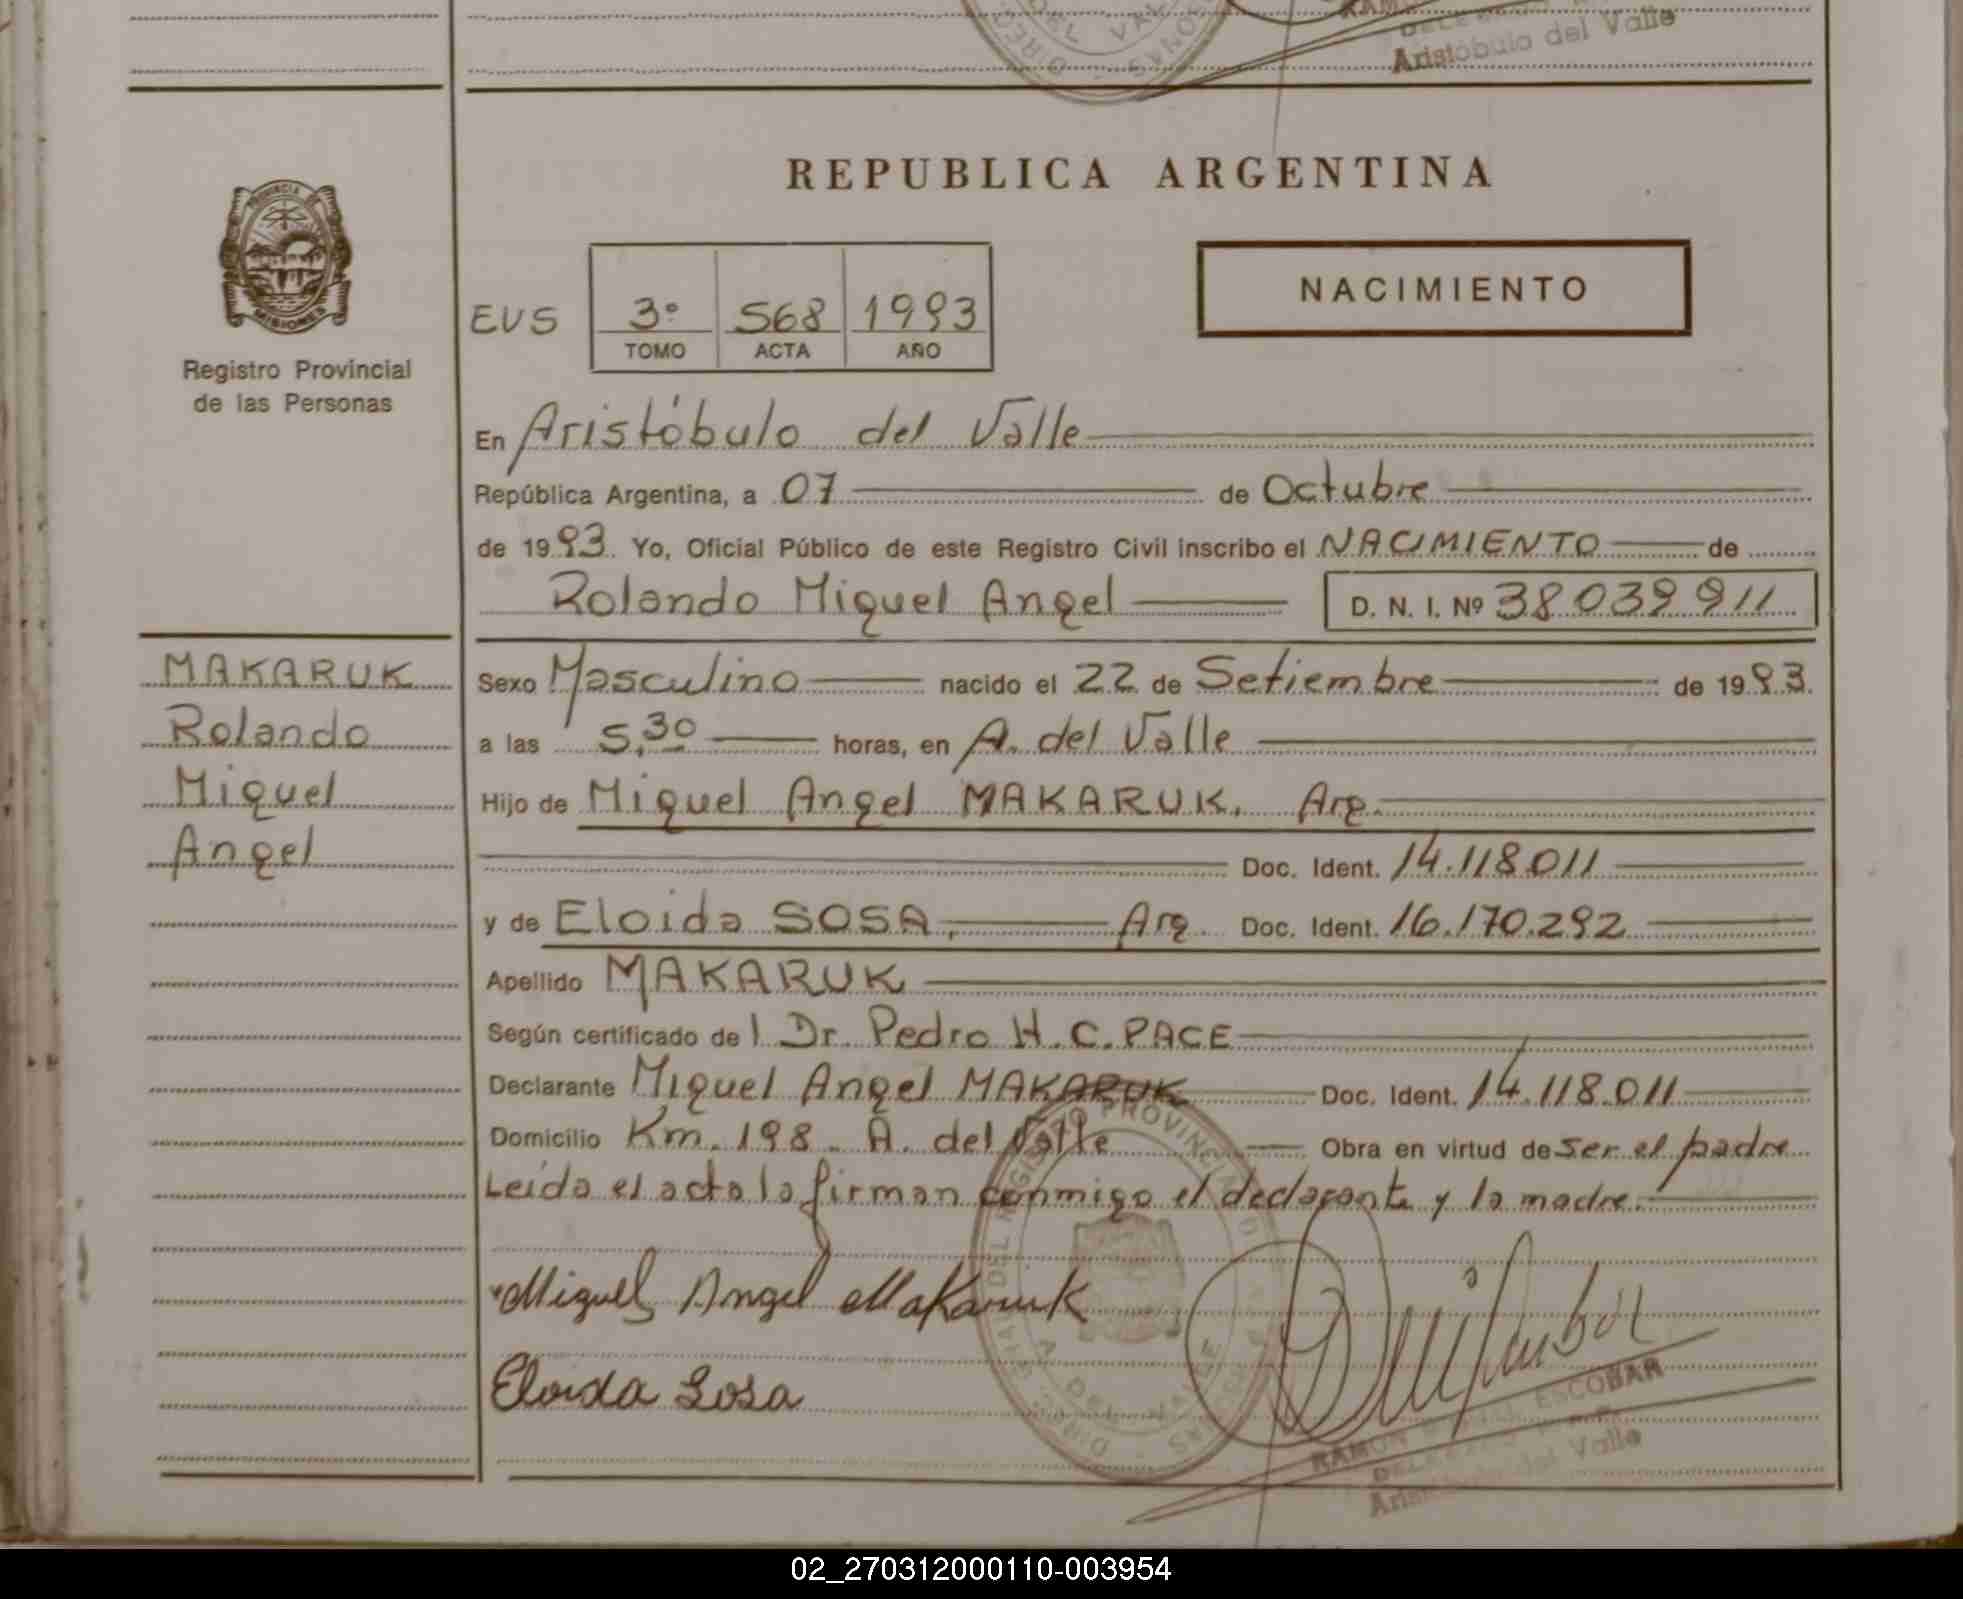 Aristóbulo del Valle
REPUBLICA ARGENTINA
PROVINCIA DE
MISIONES
Registro Provincial
de las Personas
EVS
3º 568 1993
TOMO ACTA AÑO
NACIMIENTO
En Aristóbulo del Valle
República Argentina, a 07 de Octubre
de 1993. Yo, Oficial Público de este Registro Civil inscribo el NACIMIENTO de
Rolando Miguel Angel D. N. I. Nº 38039911
MAKARUK
Rolando
Miguel
Angel
Sexo Masculino nacido el 22 de Setiembre de 1993.
a las 5,30 horas, en A. del Valle
Hijo de Miguel Angel MAKARUK. Arg.
Doc. Ident. 14.118.011
y de Eloida SOSA, Arg. Doc. Ident. 16.170.292
Apellido MAKARUK
Según certificado del Dr. Pedro H. C. PACE
Declarante Miguel Angel MAKARUK Doc. Ident. 14.118.011
Domicilio Km. 198 - A. del Valle Obra en virtud de ser el padre
Leída el acta la firman conmigo el declarante y la madre.
Miguel Angel Makaruk
Eloida Sosa
RAMON ESCOBAR
Aristóbulo del Valle
02_270312000110-003954